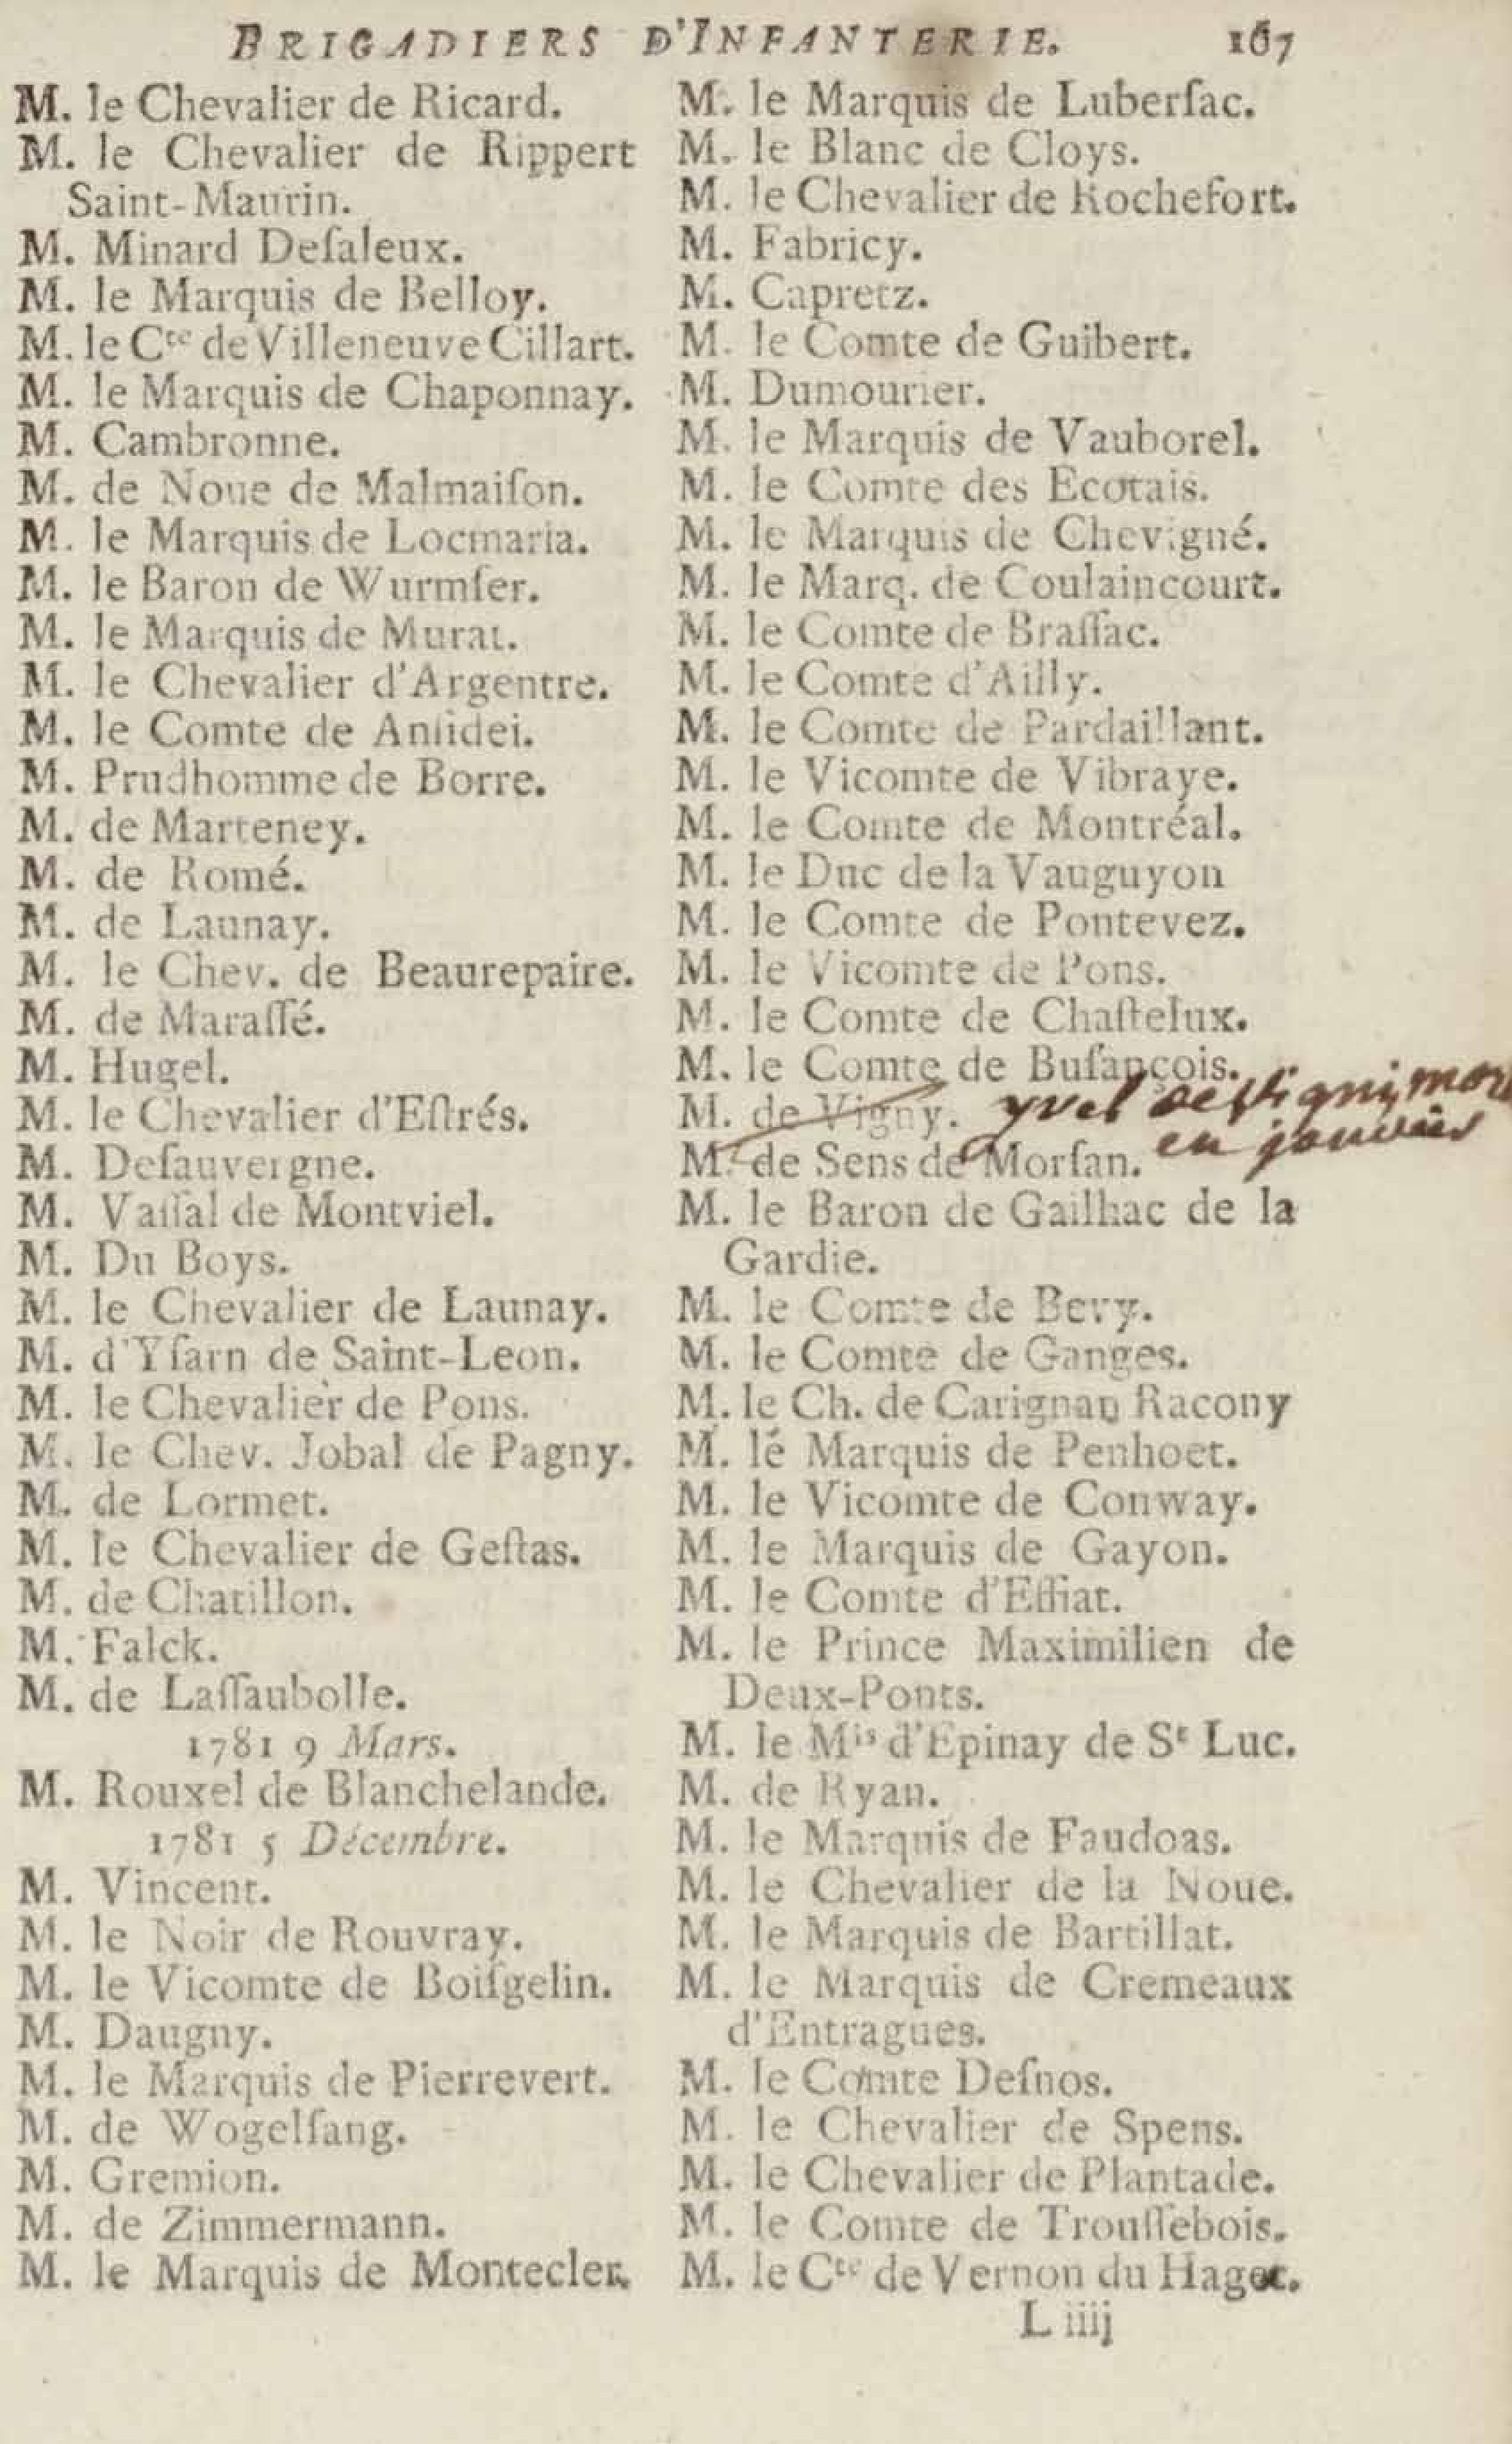 BRIGADIERS D'INFANTERIE. 167
M. le Chevalier de Ricard.
M. le Chevalier de Rippert
Saint-Maurin.
M. Minard Deſaleux.
M. le Marquis de Belloy.
M. le Cte de Villeneuve Cillart.
M. le Marquis de Chaponnay.
M. Cambronne.
M. de Noue de Malmaiſon.
M. le Marquis de Locmaria.
M. le Baron de Wurmſer.
M. le Marquis de Murat.
M. le Chevalier d'Argentre.
M. le Comte de Anſidei.
M. Prudhomme de Borre.
M. de Marteney.
M. de Romé.
M. de Launay.
M. le Chev. de Beaurepaire.
M. de Maraſſé.
M. Hugel.
M. le Chevalier d'Eſtrés.
M. Deſauvergne.
M. Vaſſal de Montviel.
M. Du Boys.
M. le Chevalier de Launay.
M. d'Yſarn de Saint-Leon.
M. le Chevalier de Pons.
M. le Chev. Jobal de Pagny.
M. de Lormet.
M. le Chevalier de Geſtas.
M. de Chatillon.
M. Falck.
M. de Laſſaubolle.
1781 9 Mars.
M. Rouxel de Blanchelande.
1781 5 Décembre.
M. Vincent.
M. le Noir de Rouvray.
M. le Vicomte de Boiſgelin.
M. Daugny.
M. le Marquis de Pierrevert.
M. de Wogelſang.
M. Gremion.
M. de Zimmermann.
M. le Marquis de Montecler.
M. le Marquis de Luberſac.
M. le Blanc de Cloys.
M. le Chevalier de Rochefort.
M. Fabricy.
M. Capretz.
M. le Comte de Guibert.
M. Dumourier.
M. le Marquis de Vauborel.
M. le Comte des Ecotais.
M. le Marquis de Chevigné.
M. le Marq. de Coulaincourt.
M. le Comte de Braſſac.
M. le Comte d'Ailly.
M. le Comte de Pardaillant.
M. le Vicomte de Vibraye.
M. le Comte de Montréal.
M. le Duc de la Vauguyon
M. le Comte de Pontevez.
M. le Vicomte de Pons.
M. le Comte de Chaſtelux.
M. le Comte de Buſançois.
M. de Vigny. yvel de Vigny mort
en janvier
M. de Sens de Morſan.
M. le Baron de Gailhac de la
Gardie.
M. le Comte de Bevy.
M. le Comte de Ganges.
M. le Ch. de Carignan Racony
M. le Marquis de Penhoet.
M. le Vicomte de Conway.
M. le Marquis de Gayon.
M. le Comte d'Effiat.
M. le Prince Maximilien de
Deux-Ponts.
M. le Mis d'Epinay de St Luc.
M. de Ryan.
M. le Marquis de Faudoas.
M. le Chevalier de la Noue.
M. le Marquis de Bartillat.
M. le Marquis de Cremeaux
d'Entragues.
M. le Comte Deſnos.
M. le Chevalier de Spens.
M. le Chevalier de Plantade.
M. le Comte de Trouſſebois.
M. le Cte de Vernon du Haget.
L iiij